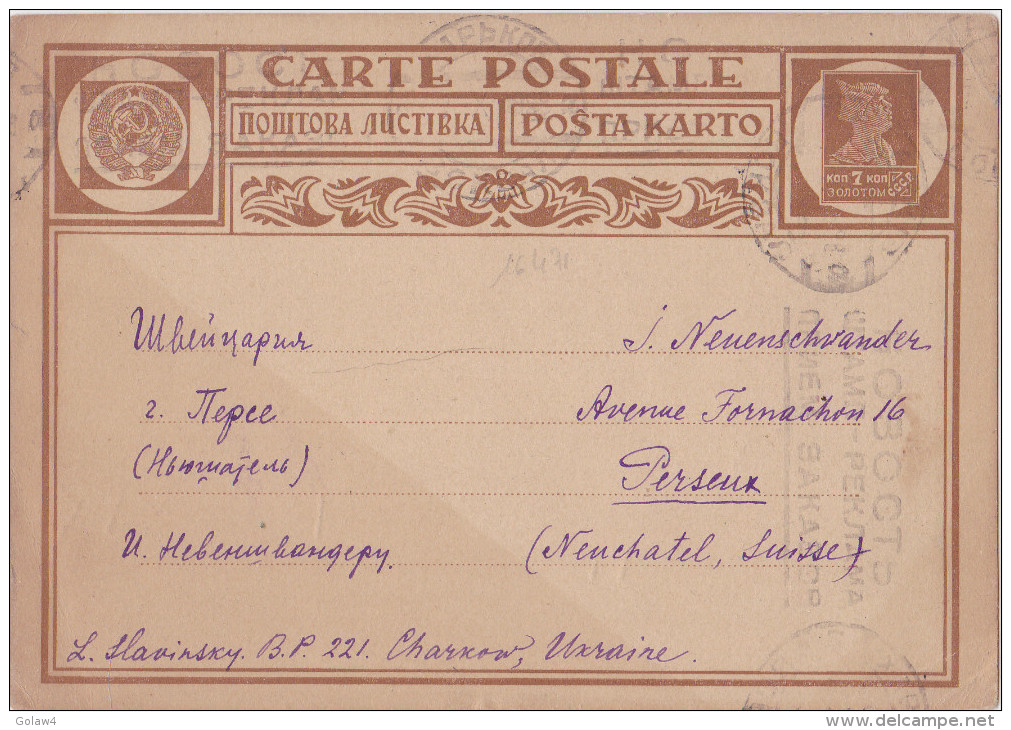 CARTE POSTALE
ПОШТОВА ЛИСТІВКА
POŜTA KARTO
КОП 7 КОП
ЗОЛОТОМ
СССР
16471
Швейцария
г. Песе
(Ньюшатель)
И. Невеншвандеру.
J. Neuenschwander
Avenue Fornachon 16
Perseux
(Neuchatel, Suisse)
L. Slavinsky. B.P. 221. Charkow, Ukraine.
НОВОСТЬ
ШТАМП-РЕКЛАМА
Golaw4
www.delcampe.net